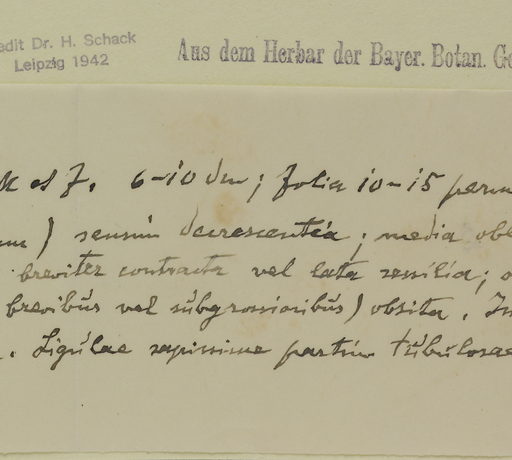 adit Dr. H. Schack
Leipzig 1942
Aus dem Herbar der Bayer. Botan. Ge
6-10 dm; folia 10-15 perm
) sensim decrescentia; media obl
breviter contracta vel lata sessilia; o
brevibus vel subgrossioribus) obsita. In
. Ligulae sapissime partim tubulosae